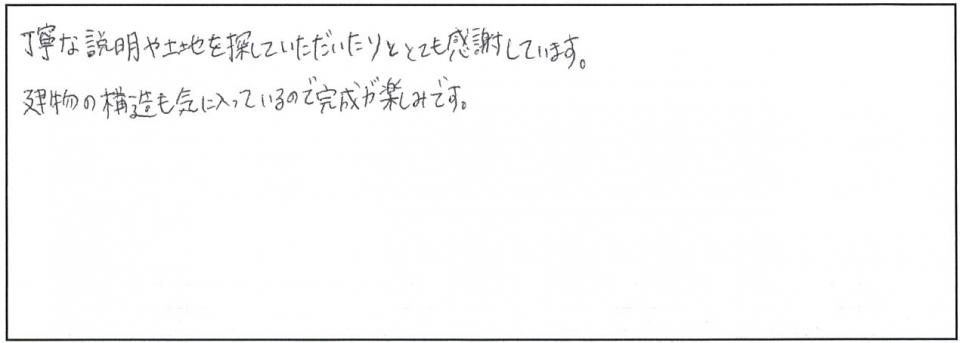 丁寧な説明や土地を探していただいたりととても感謝しています。
建物の構造も気に入っているので完成が楽しみです。